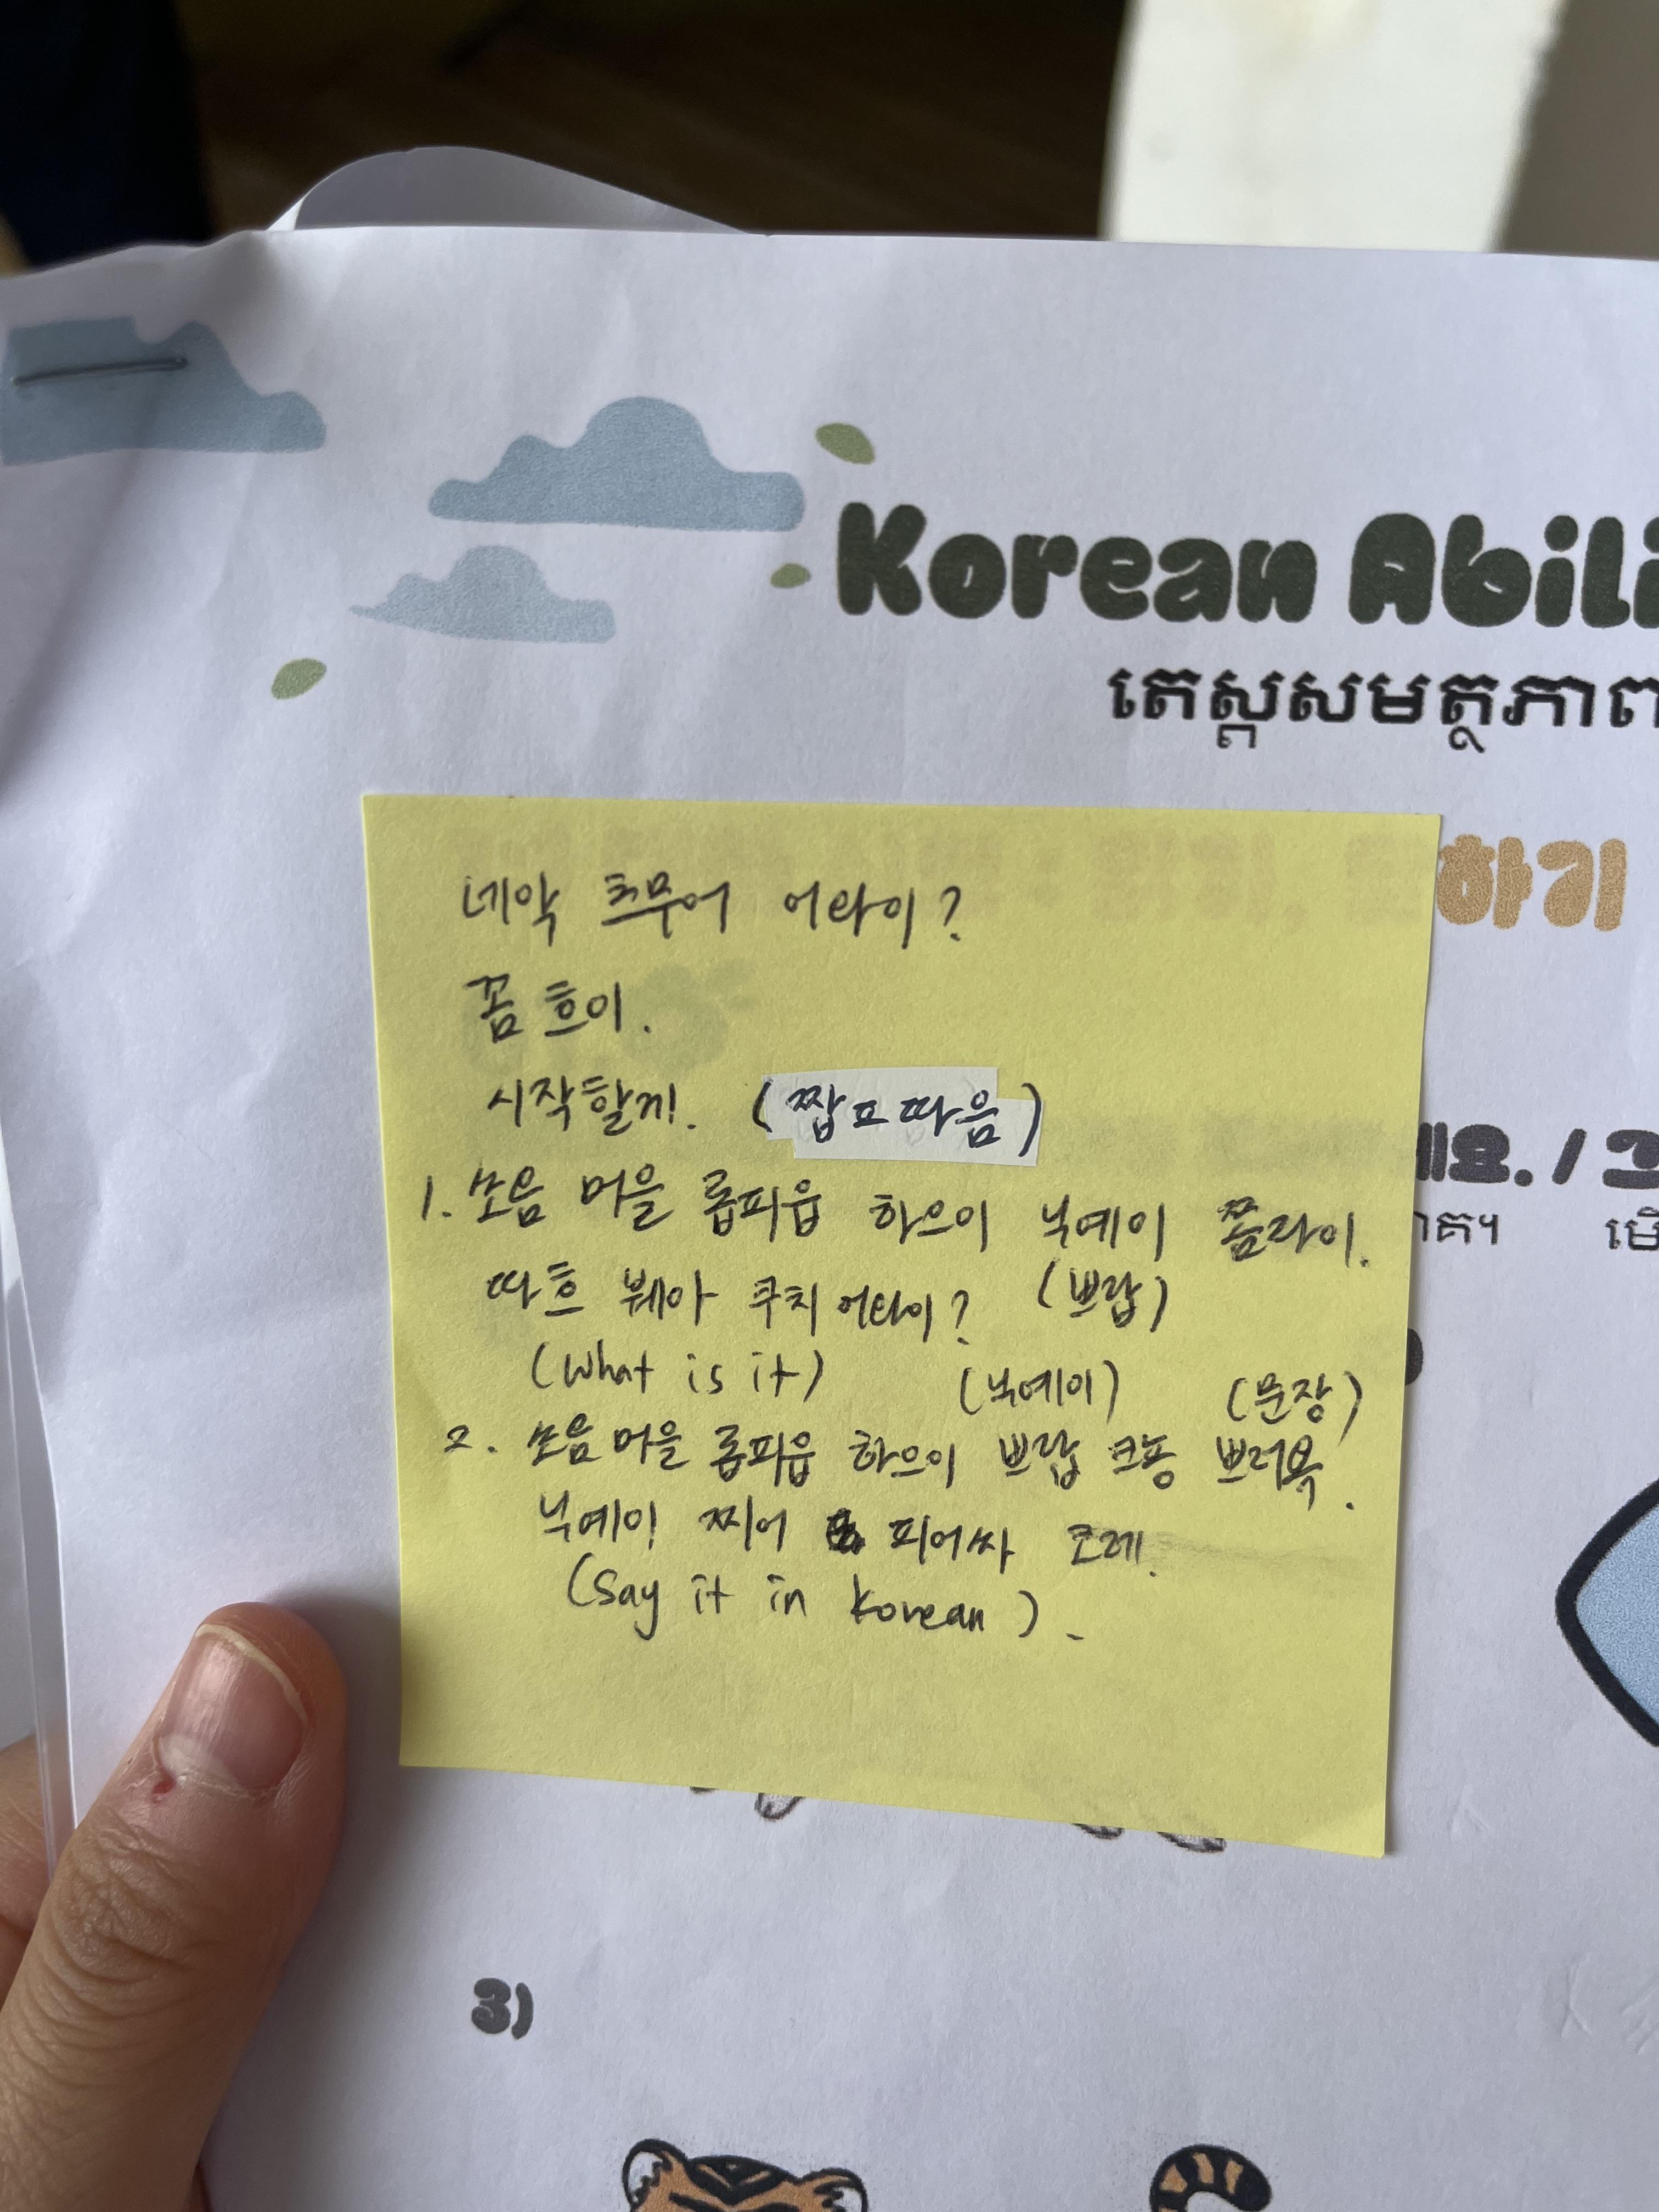 Korean Abili
តេស្តសមត្ថភាព
하기
네약 츠무어 어라이?
꼼 흐이.
시작할게!. (짭프따음)
세요. / 그
1. 쏘음 머을 룹피읍 하으이 닉예이 쫌라이.
따흐 붸아 쿠치 어라이? (쁘랍)
(What is it) (닉예이) (문장)
2. 쏘음 머을 룹피읍 하으이 쁘랍 크농 쁘러욕.
닉예이 찌어 피어싸 꼬레.
(Say it in Korean).
3)